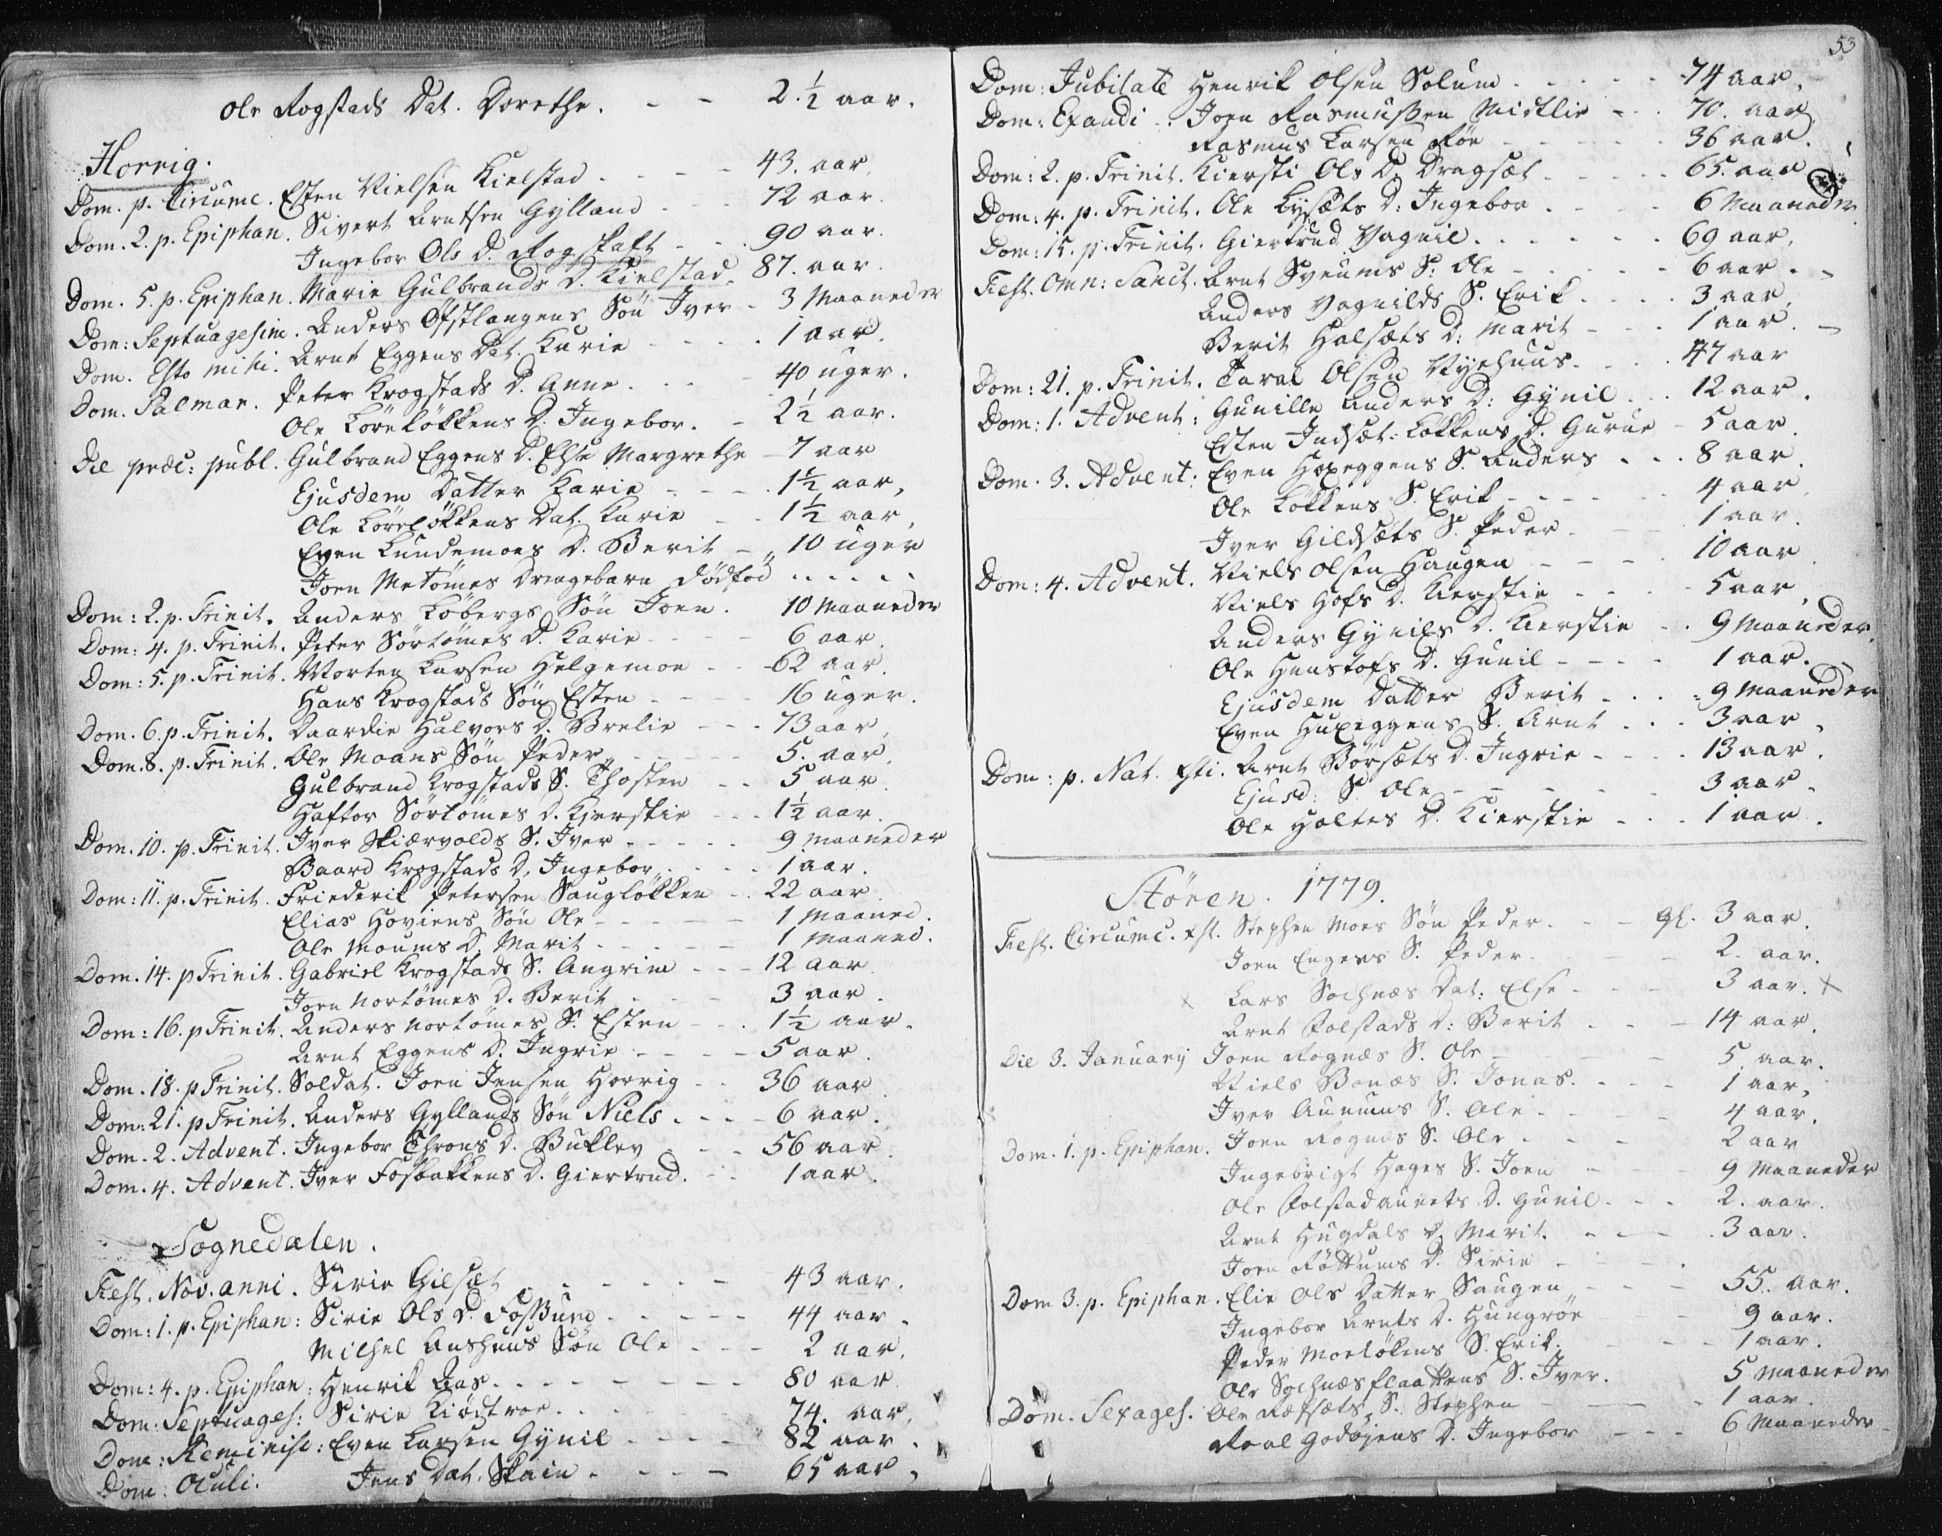 Ole Rogstads Dat. Dorethe. - - 2 1/2 aar.
Horrig.
Dom. p. Circumc. Esten Nielsen Kielstad - - - - 43. aar.
Dom. 2. p. Epiphan. Sivert Arntsen Gylland - - - 72 aar.
Ingebor Ols D. Rogstatt - - - 90 aar.
Dom. 5. p. Epiphan. Marie Gulbrands D. Kielstad. 87. aar.
Dom: Septuagesim. Anders Øfstlangens Søn Iver - 3 Maaneder
Dom. Esto mihi. Arnt Eggens Dat. Karie - - - - 1 aar.
Dom. Palmar. Peter Krogstads D. Anne. - - - 40 uger.
Ole Løreløkkens D. Ingebor. - 2 1/2 aar.
Die præc: publ. Gulbrand Eggens D. Else Margrethe - 7 aar
Ejusdem Datter Karie - - - - 1 1/2 aar,
Ole Løreløkkens Dat. Karie - - 1 1/2 aar,
Even Lundemoes D. Berit - 10 uger
Joen Metømes Drengebarn dødfød . . . . .
Dom: 2. p. Trinit. Anders Løbergs Søn Joen. 10 Maaneder
Dom: 4. p. Trinit. Peter Sørtømes D. Karie - - - - 6 aar.
Dom: 5. p. Trinit. Morten Larsen Helgemoe - - - 62 aar.
Hans Krogstads Søn Esten - - - - 16 uger.
Dom. 6. p. Trinit. Daardie Halvors D. Brelie - - - 73 aar.
Dom. 8. p. Trinit. Ole Moans Søn Peder - - - - 5. aar.
Gulbrand Krogstads S. Thosten - - 5 aar.
Haftor Sørtømes D. Kjerstie - - - 1 1/2 aar.
Dom. 10. p. Trinit. Iver Skiærvolds S. Iver - - - - - 9 Maaneder
Baard Krogstads D. Ingebor - - - - 1 aar.
Dom: 11. p. Trinit. Friederik Petersen Saugløkken - - 22 aar
Elias Hoviens Søn Ole - - - - - 1 Maaned.
Ole Moums D. Marit - - - - - 1 Maaned.
Dom. 14. p Trinit. Gabriel Krogstads S. Angrim - - - 12 aar.
Joen Nortømes D. Berit - - - - 3 aar.
Dom: 16. p Trinit. Anders Nortømes S. Esten - - - 1 1/2 aar.
Arnt Eggens D. Ingrie - - - - 5 aar.
Dom. 18. p Trinit. Soldat. Joen Jensen Horrig - - 36 aar
Dom: 21. p Trinit. Anders Gyllands Søn Niels. - - - 6 aar.
Dom. 2. Advent. Ingebor Throns D. Buklev - - - 56 aar.
Dom. 4. Advent. Iver Fosbakkens D. Giertrud. - - 1 aar.
Sognedalen.
Fest. Nov. anni. Sirie Gilset - - - - - - 43 aar.
Dom: 1. p. Epiphan: Sirie Ols D. Fossum - - - - 44 aar.
Milhel Aashuus Søn Ole - - - 2 aar.
Dom: 4. p. Epiphan: Henrik Aas - - - - - - - 80 aar.
Dom: Septuages: Sirie Kiødtroe - - - - - - 74. aar.
Dom: Reminisc: Even Larsen Gynil - - - - 82 aar.
Dom. Oculi. Jens Dat. Skain - - - - 65 aar.
53
Dom: Jubilate Henrik Olsen Solum - - - - - 74 aar.
Dom: Exaudi . Joen Rasmussen Midtlie - - - 70. aar.
Rasmus Larsen Røe - - - - - - 36 aar.
Dom: 2. p. Trinit. Kiersti Ols D. Dragset - - - - - 65. aar
Dom: 4. p. Trinit. Ole Lysæts D: Ingebor - - - - 6 Maaneder
Dom: 15. p. Trinit. Giertrud Vagnil - - - - - - 69 aar.
Fest. Omn: Sanct. Arnt Sveums S: Ole - - - - - 6 aar.
Anders Vagnilds S. Erik - - - - 3 aar.
Berit Halsæts D: Marit - - - - 1 aar.
Dom: 21. p. Trinit. Taral Olsen Nyehuus - - - 47 aar
Dom: 1. Advent: Gunille Anders D: Gynil - - - 12 aar.
Esten Indset: Løkkens D. Gurue - 5 aar.
Dom. 3. Advent: Even Hoxeggens S. Anders . . . 8 aar.
Ole Løkkens S. Erik - - - - - 4 aar.
Iver Gildsæts S. Peder - - - - 1 aar.
Dom: 4. Advent. Niels Olsen Haugen - - - - 10 aar
Niels Hofs D. Kierstie - - - - 5 aar,
Anders Gynils D. Kierstie - - 9 Maaneder.
Ole Hanstofs D. Gunil - - - - 1 aar.
Ejusdem Datter Berit - . . . 9 Maaneder
Even Huxeggens S. Arnt . . . . 3 aar.
Dom: p. Nat. Xsti. Arnt Børsæts D. Ingrie - - - - 13 aar.
Ejusd: S. Ole - - - - - - 3 aar.
Ole Holtes D. Kierstie - - - - 1 aar.
Støren. 1779.
Fest. Circumc. Xst. Stephen Moes Søn Peder - - - Gl. 3 aar.
Joen Engens S. Peder - - - - 2. aar.
x Lars Sochnæs Dat: Else - - - - 3 aar. x
Arnt Folstads D: Berit - - - - 14 aar.
Die 3. January Joen Rognæs S. Ole - - - - - 5. aar.
Niels Bonæs S. Jonas. - - - - 1 aar,
Iver Aunums S. Ole - - - - - 4 aar.
Dom. 1. p. Epiphan. Joen Rognæs S. Ole - - - - 2 aar
Ingebrigt Hages S. Joen - - - 9 Maaneder
Ole Folstadaunets D. Gunil - - - 2. aar.
Arnt Hugdals D. Marit. - - - - 3 aar.
Joen Røttums D. Sirie - - - - .
Dom 3. p. Epiphan. Elie Ols Datter Haugen - - - 55. aar.
Ingebor Arnts D. Hungrøe 9 aar.
Peder Moeløkens S. Erik - - - 1 aar.
Ole Sochnæsflaattens S. Iver. 5 Maaneder
Dom. Sexages. Ole Ræfsæts S. Stephen - - - - 1 aar.
Roal Godøjens D. Ingebor - - - 6 Maaneder